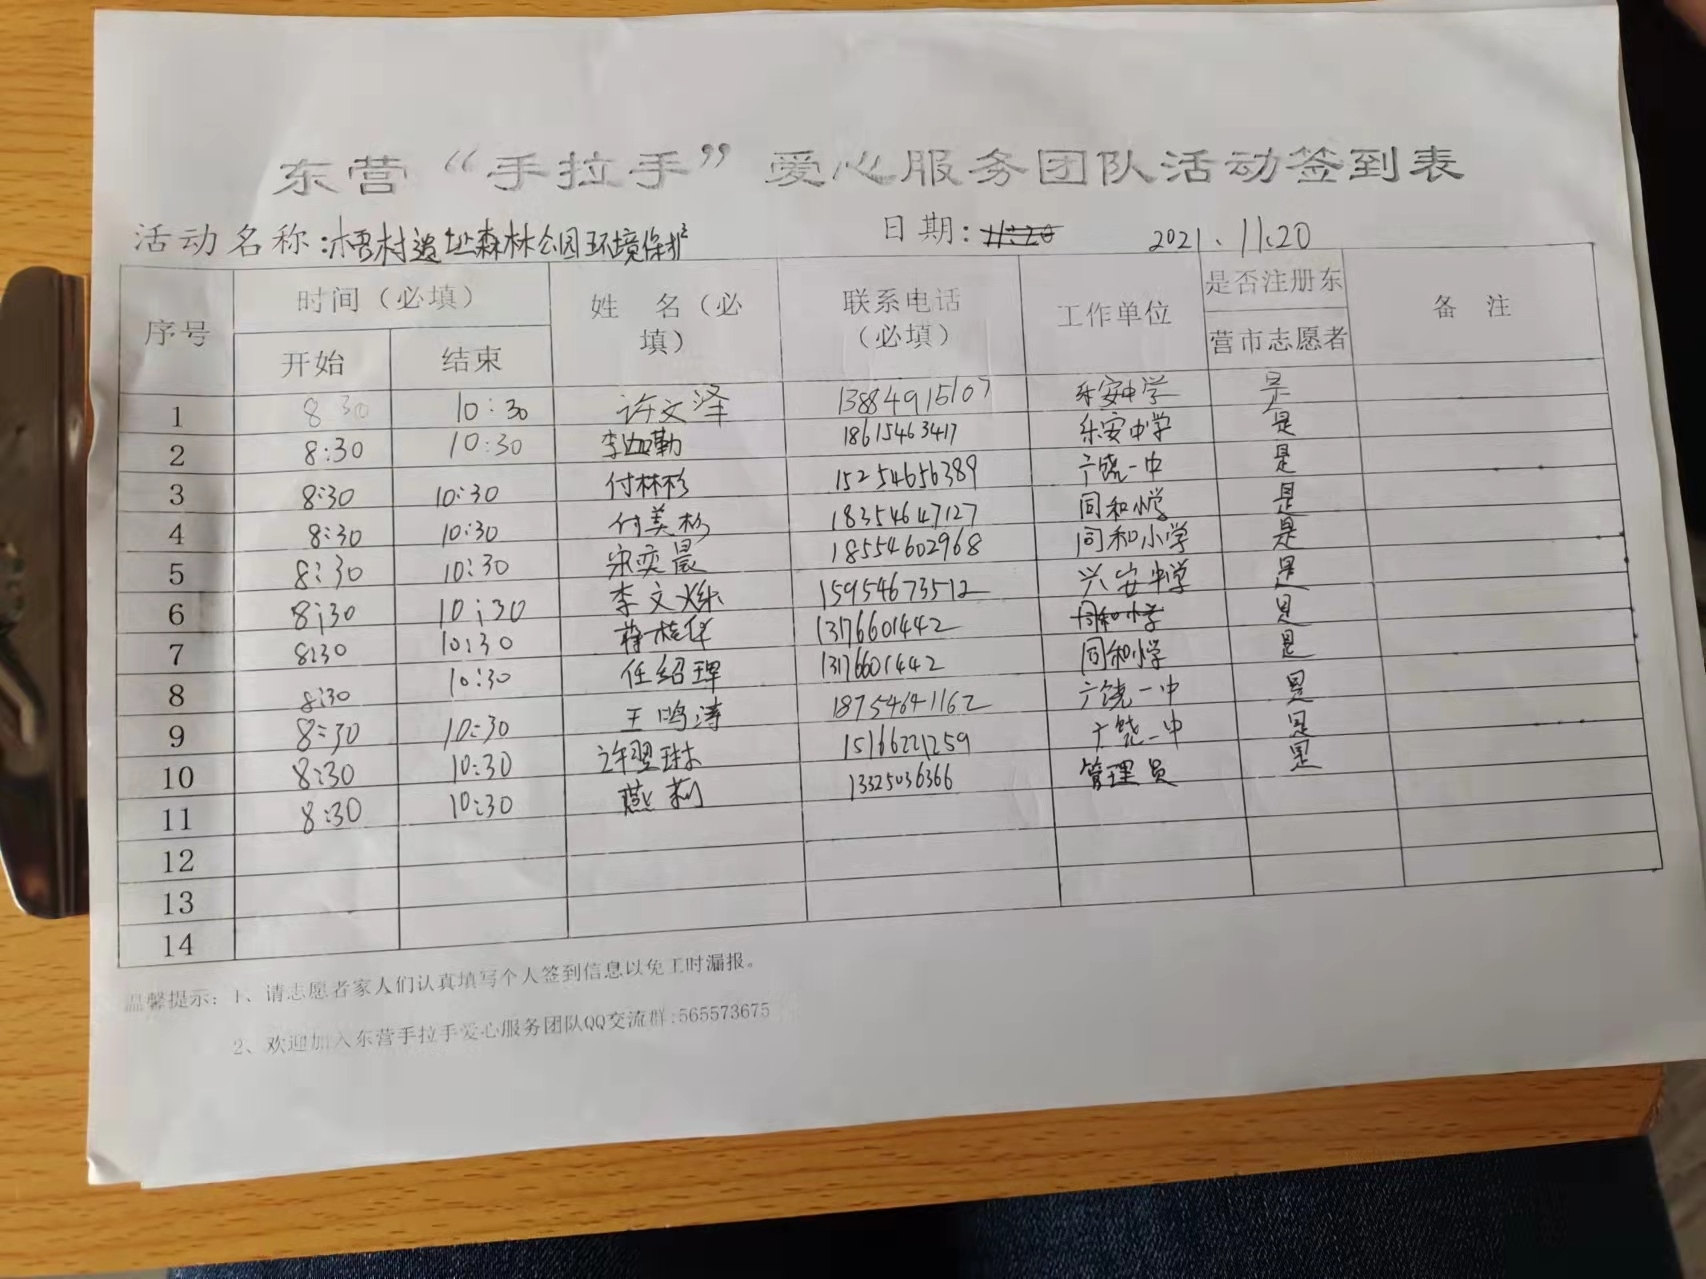 东营“手拉手”爱心服务团队活动签到表
活动名称:梧村遗址森林公园环境保护 日期: 11.20 2021.11.20
序号 时间（必填） 姓 名（必填） 联系电话（必填） 工作单位 是否注册东营市志愿者 备 注
开始 结束
1 8 30 10:30 许文泽 13884915107 乐安中学 是
2 8:30 10:30 李迦勒 18615463417 乐安中学 是
3 8:30 10:30 付林杉 15254656389 广饶一中 是
4 8:30 10:30 付美杉 18354647127 同和小学 是
5 8:30 10:30 宋奕晨 18554602968 同和小学 是
6 8:30 10:30 李文烁 15954673512 兴安中学 是
7 8:30 10:30 桂华 13176601442 同和小学 是
8 8:30 10:30 任绍珲 13176601442 同和小学 是
9 8:30 10:30 王鸣涛 18754641162 广饶一中 是
10 8:30 10:30 许翌琳 15166221259 广饶一中 是
11 8:30 10:30 燕莉 13325036366 管理员 是
12
13
14
温馨提示：1、请志愿者家人们认真填写个人签到信息以免工时漏报。
2、欢迎加入东营手拉手爱心服务团队QQ交流群:565573675